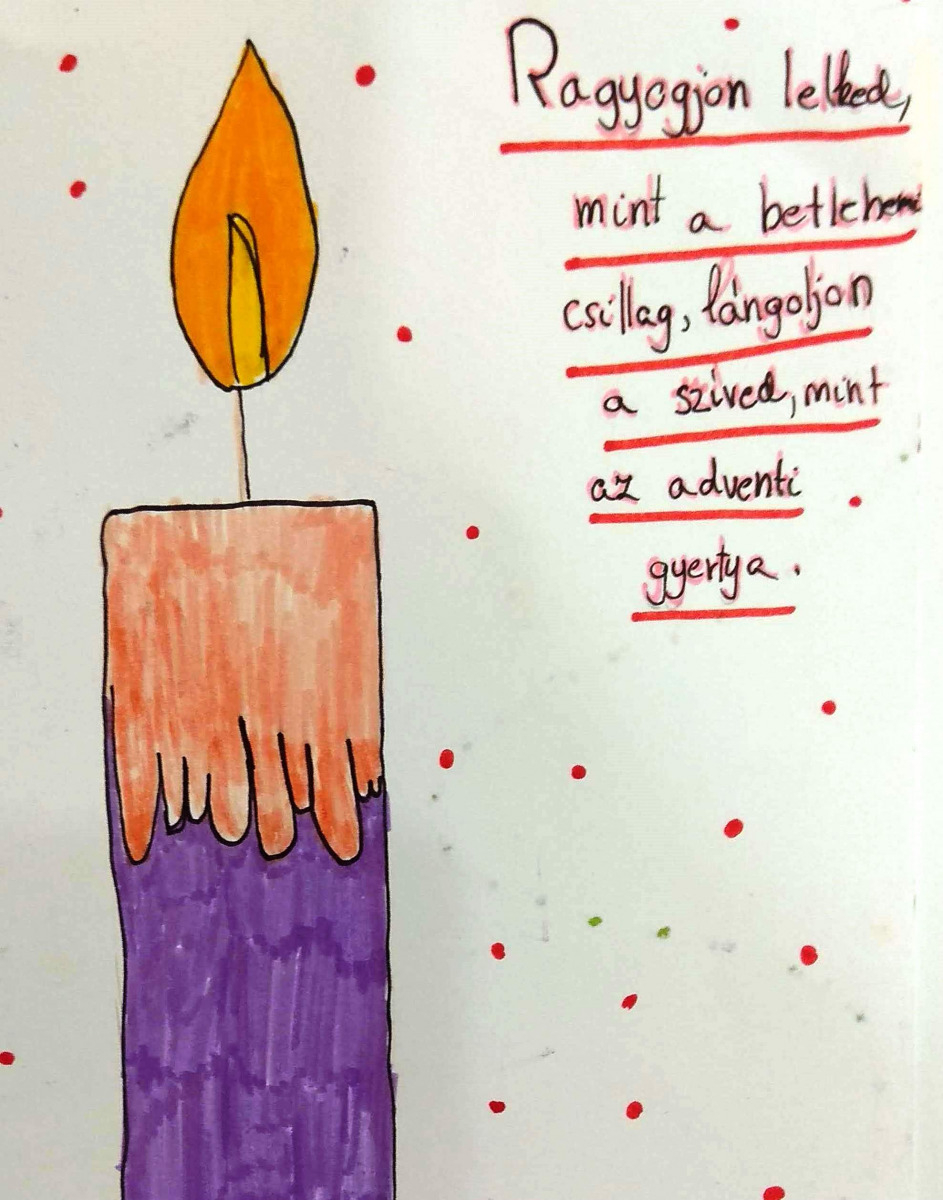 Ragyogjon lelked,
mint a betlehemi
csillag, lángoljon
a szíved, mint
az adventi
gyertya.